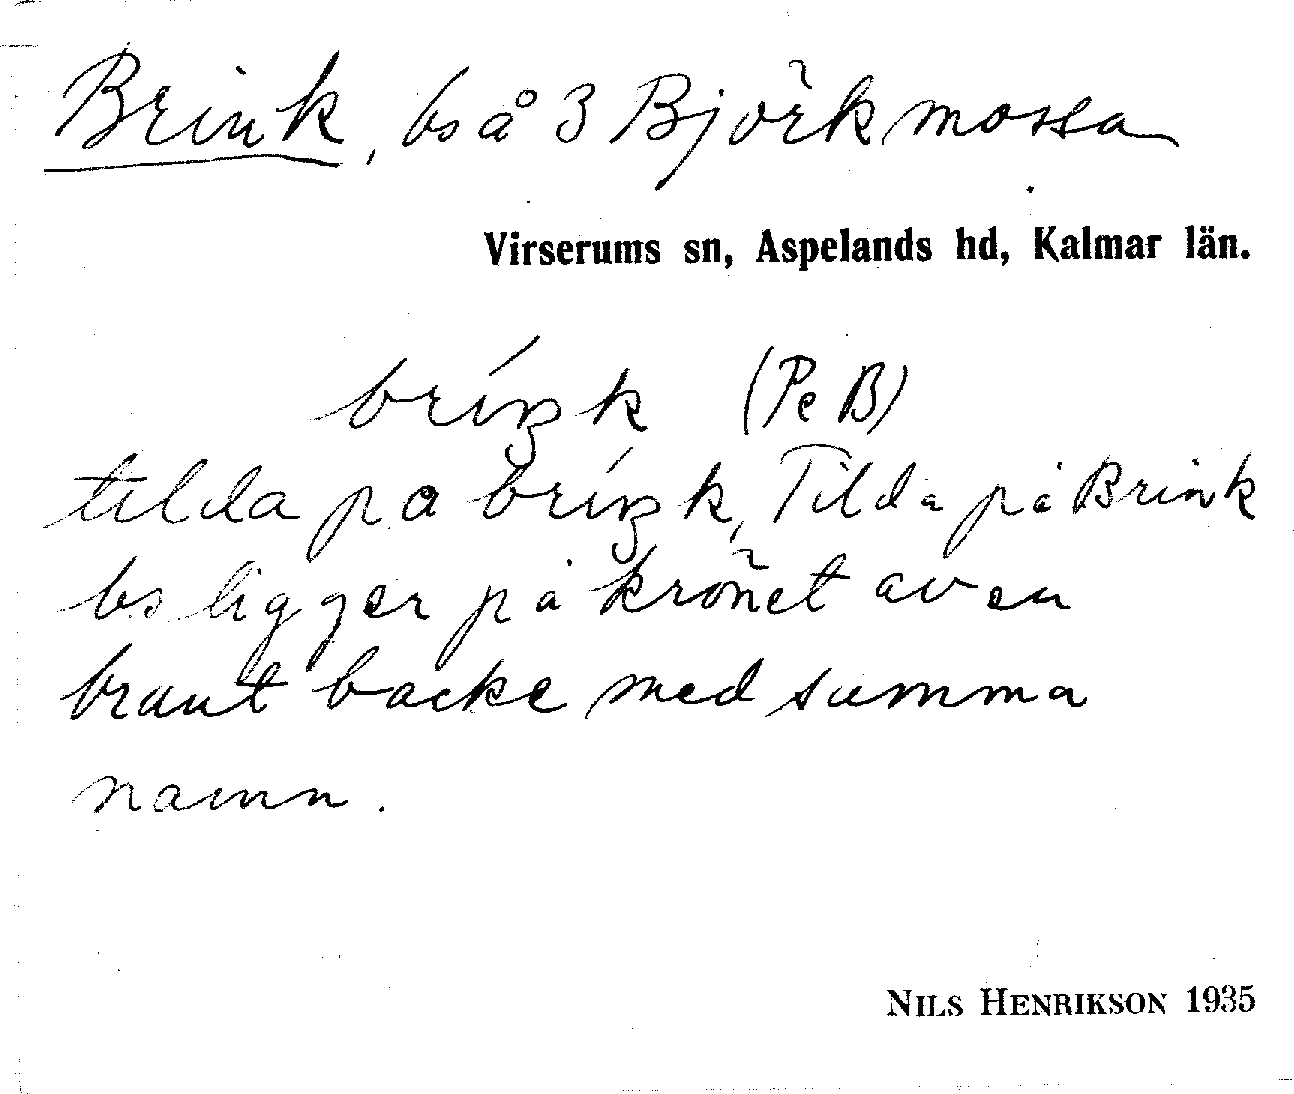 Brink, bs å 3 Björkmossa
Virserums sn, Aspelands hd, Kalmar län.
bríŋk (Pe B)
tilda pa bríŋk, Tilda på Brink
bs ligger på krönet av en
brant backe med samma
namn.
NILS HENRIKSON 1935